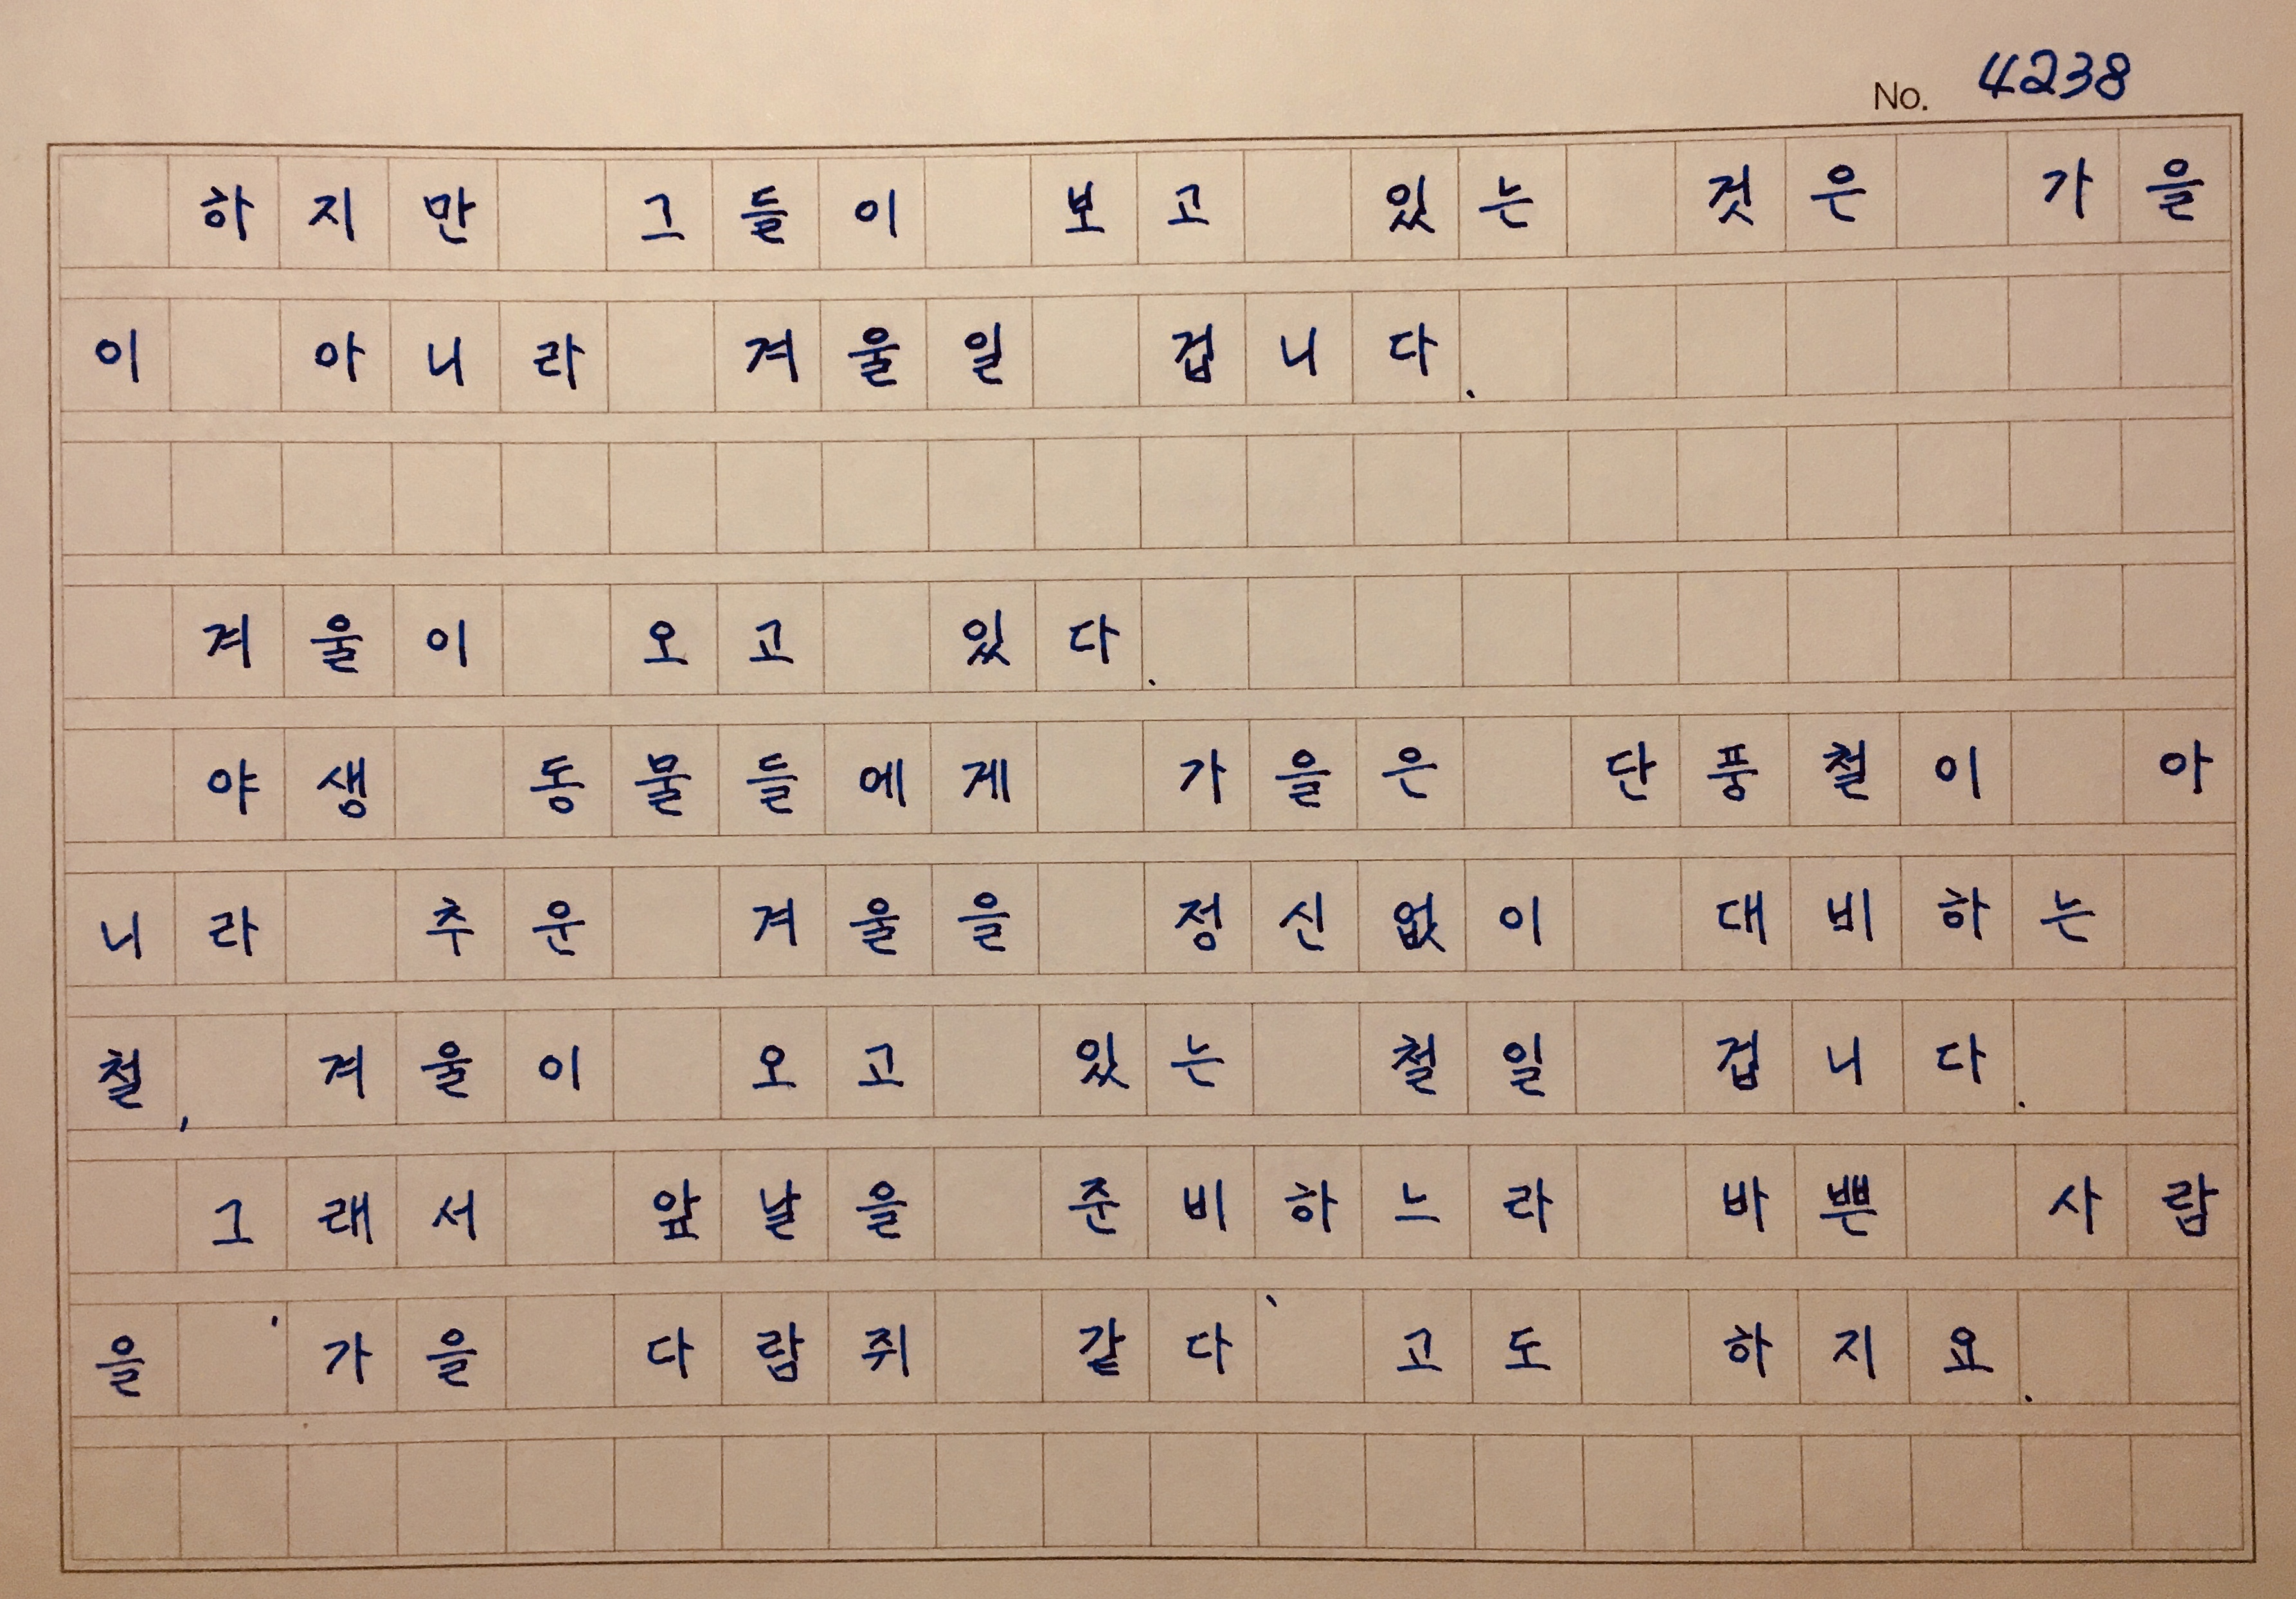 No. 4238
하지만 그들이 보고 있는 것은 가을
이 아니라 겨울일 겁니다.
겨울이 오고 있다.
야생 동물들에게 가을은 단풍철이 아
니라 추운 겨울을 정신없이 대비하는
철, 겨울이 오고 있는 철일 겁니다.
그래서 앞날을 준비하느라 바쁜 사람
을 '가을 다람쥐 같다'고도 하지요.